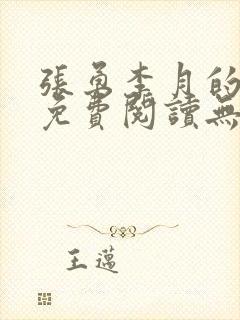 張勇李月的
免費閱讀無
王邁